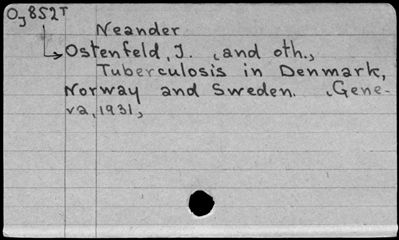 Oj852T
Neander
Ostenfeld, J. (and oth.,
Tuberculosis in Denmark,
Norway and Sweden. (Gene-
va, 1931,